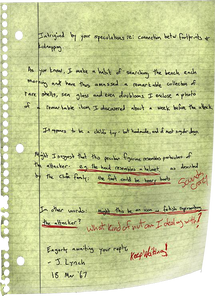 Intrigued by your speculations re: connection betw footprints +
kidnapping.
As you know, I make a habit of searching the beach each
morning and have thus amassed a remarkable collection of
rare shells, sea glass and such
I enclose a photo
of a remarkable item I discovered about a week before the attack.
It appears to be a child's toy - but handmade, and of most singular design.
Might I suggest that this peculiar figurine resembles
the attacker: e.g. the head resembles a helmet
as described
by the
family; the feet could be heavy boots.
In other words: Might this be an icon or fetish representing
the attacker?
What kind of
am I dealing with?
Eagerly awaiting your reply,
- J. Lynch
15 Mar '67